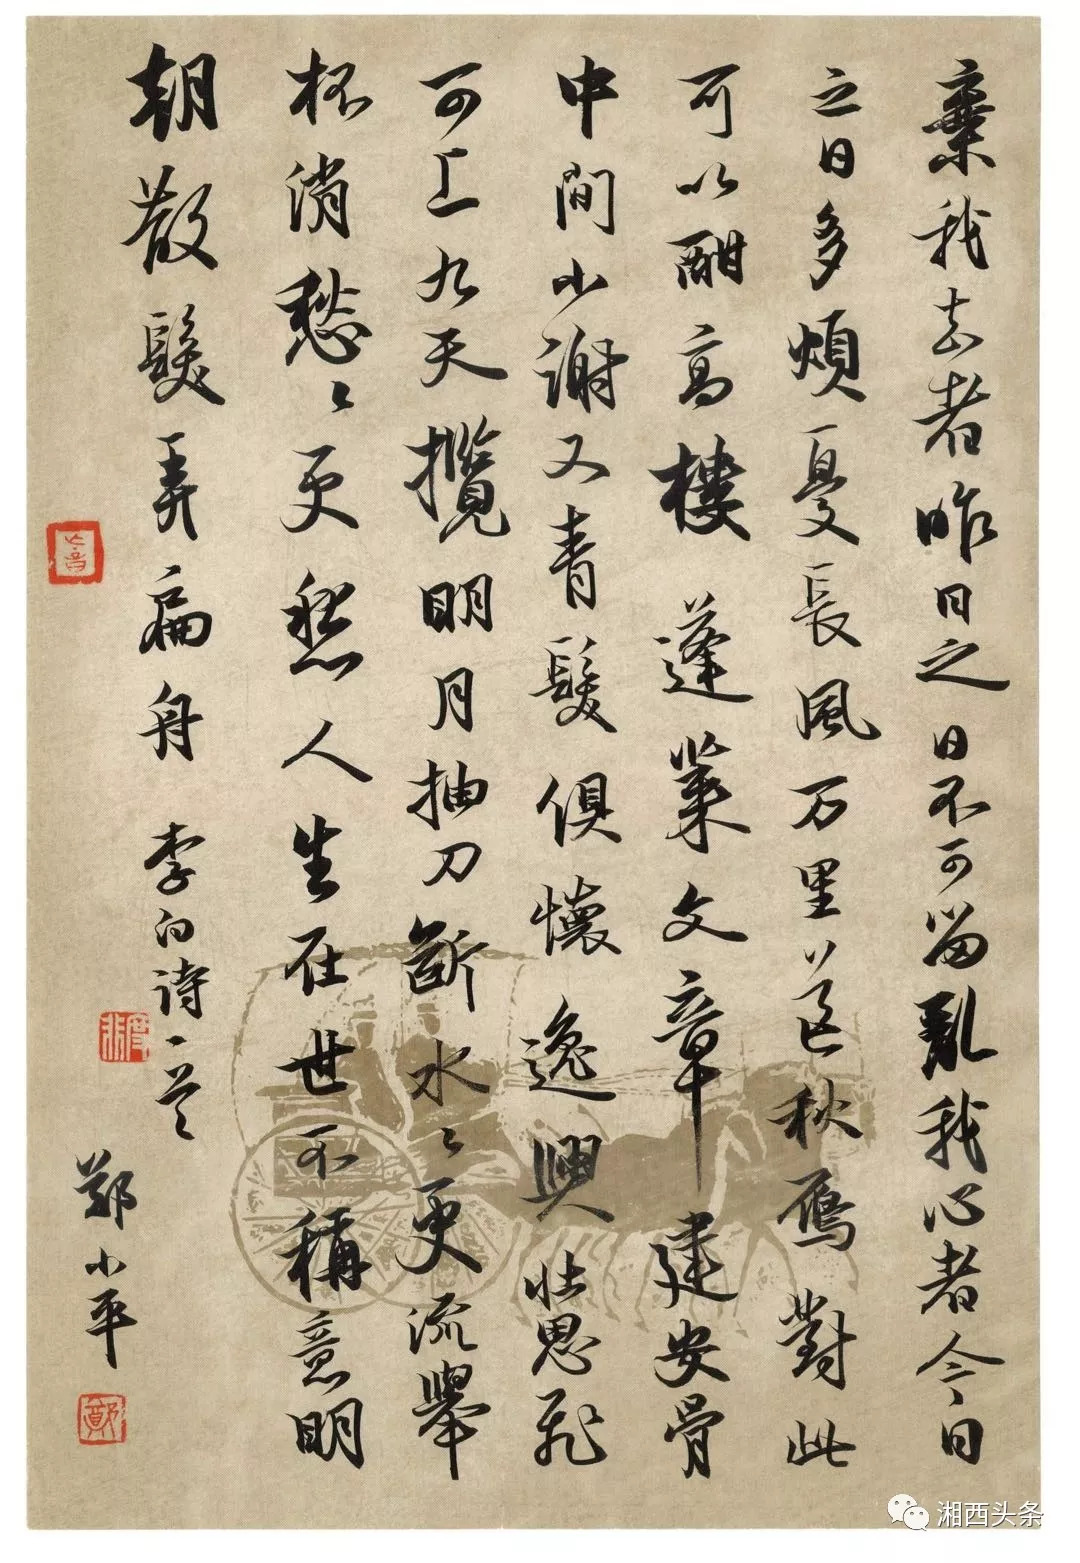 棄我去者昨日之日不可留亂我心者今日
之日多煩憂長風万里送秋雁對此
可以酣高樓蓬萊文章建安骨
中間小謝又青髮俱懷逸興壯思飛
可上九天攬明月抽刀斷水〻更流舉
杯消愁〻更愁人生在世不稱意明
朝散髮弄扁舟 李白诗一首
鄭小平
鄭
湘西头条